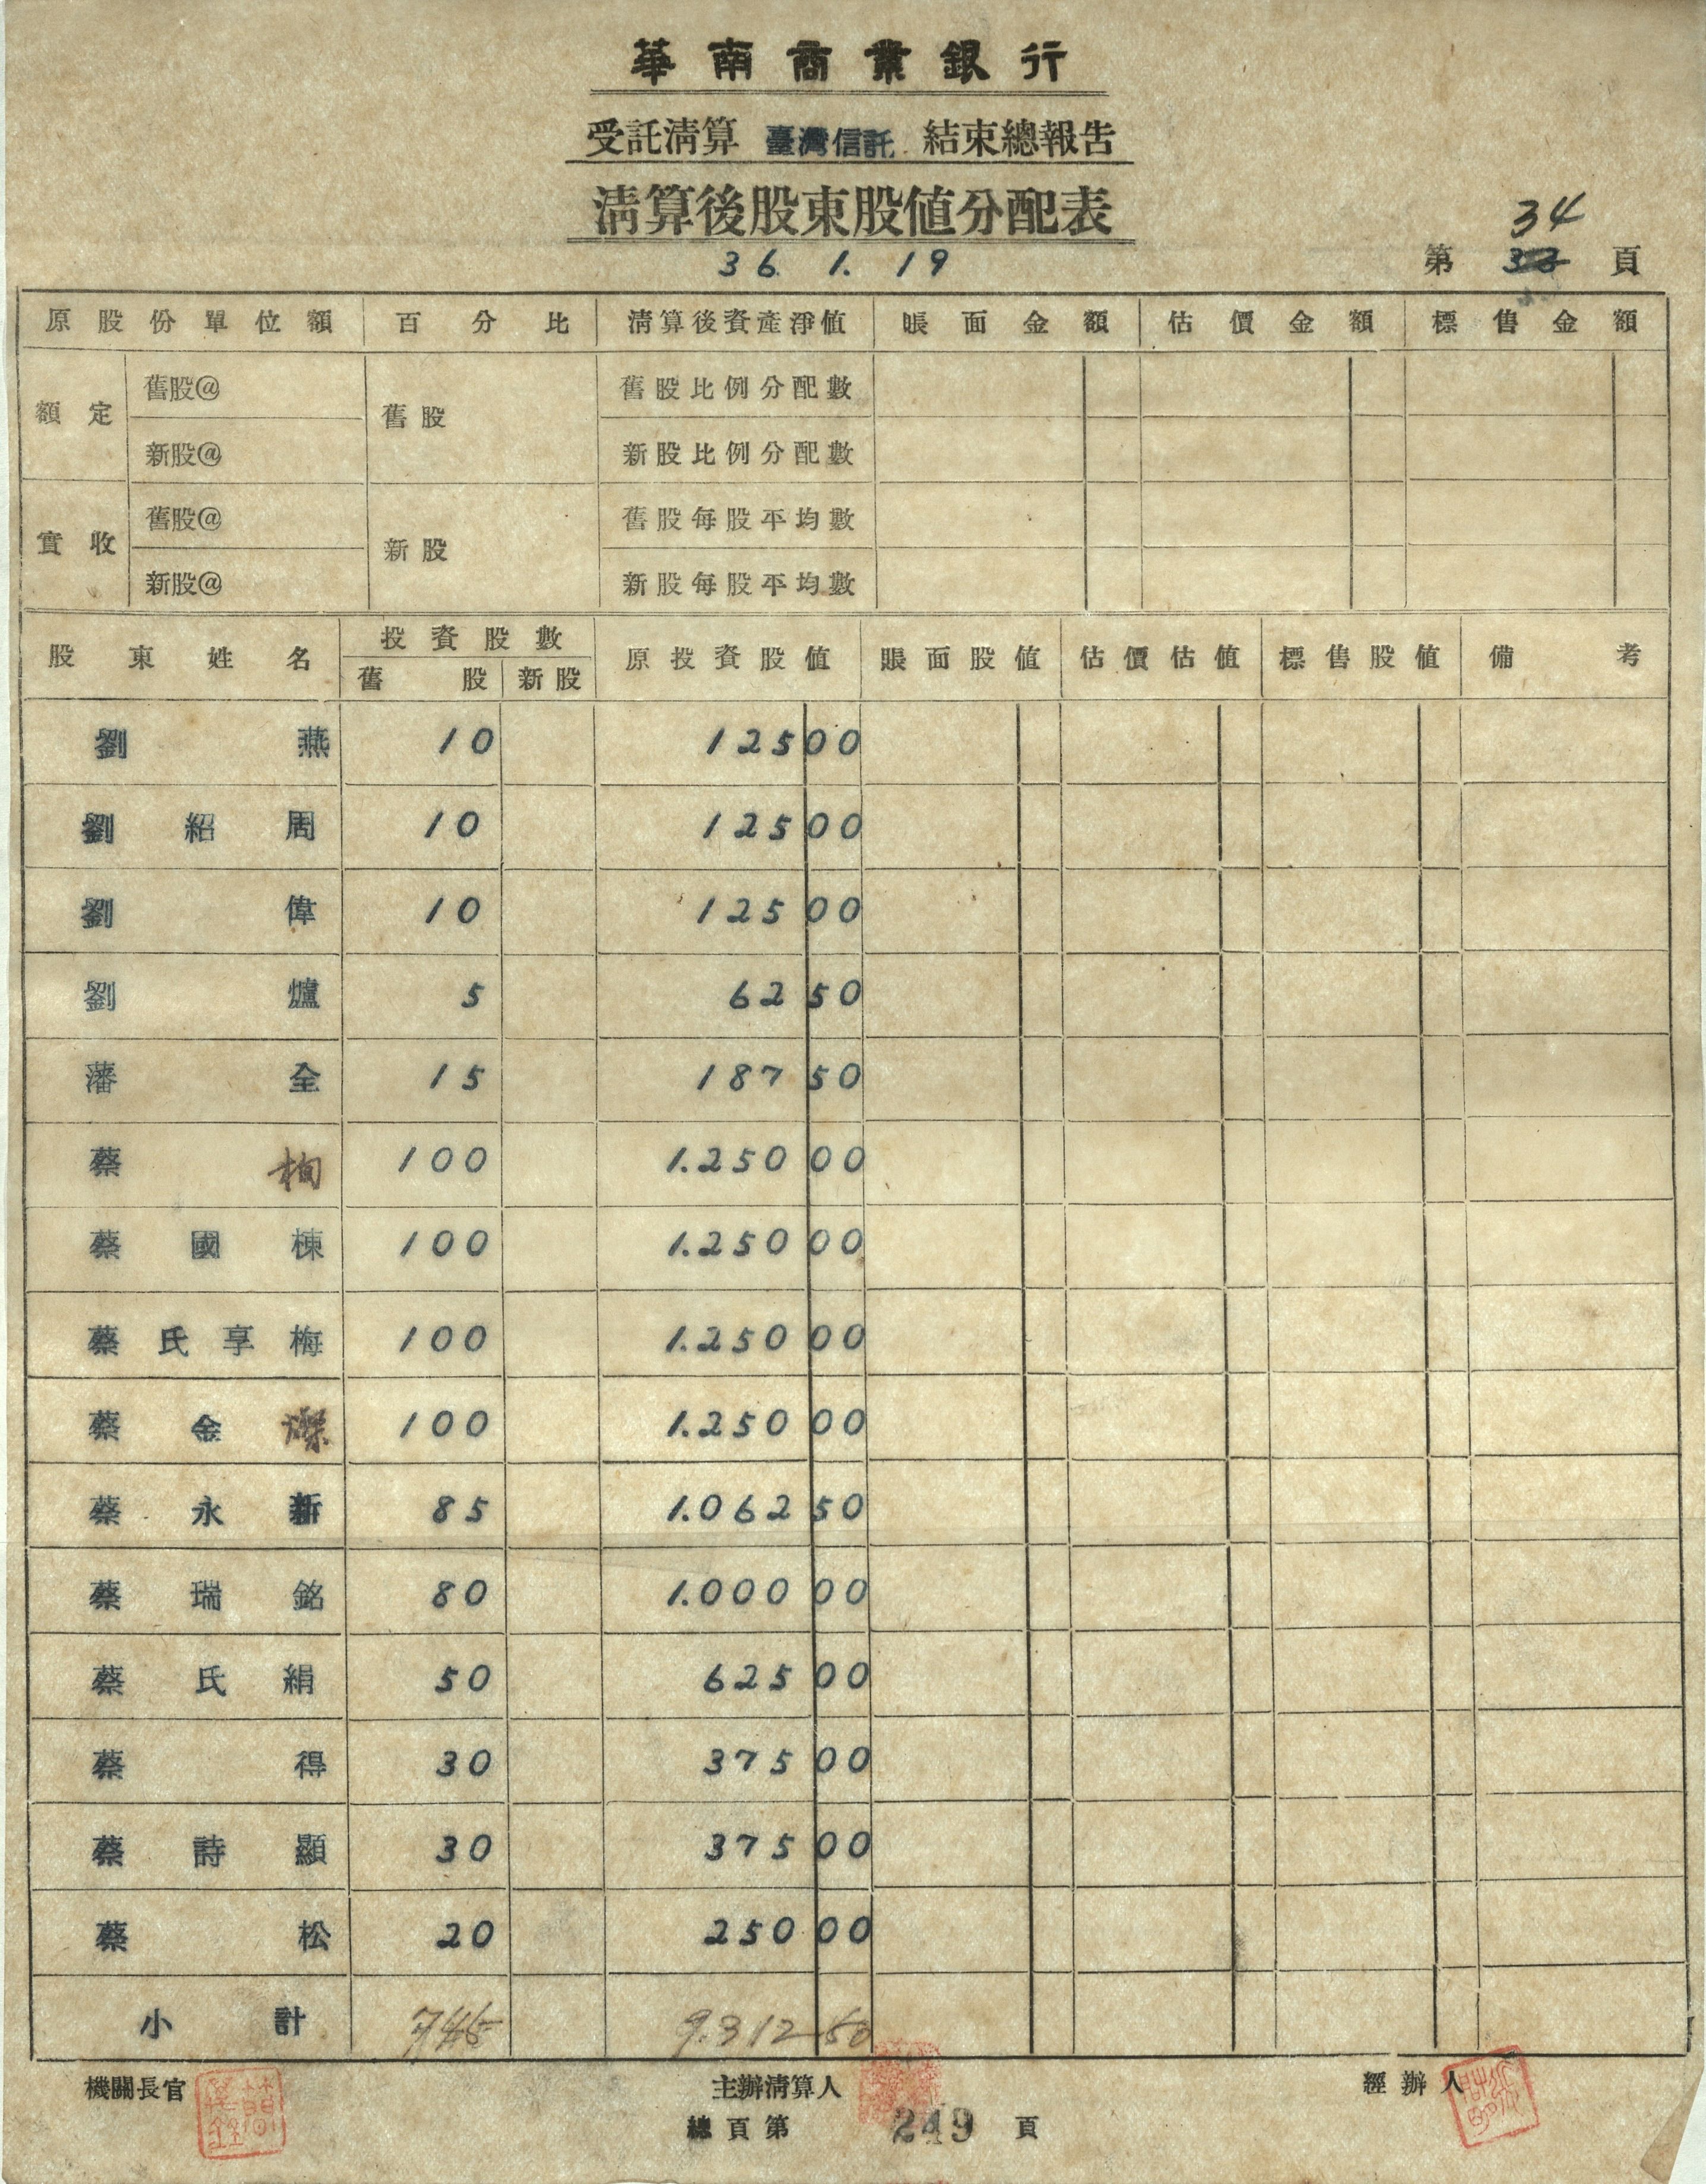 華南商業銀行
受託清算 臺灣信託 結束總報告
清算後股東股值分配表
36. 1. 19
34
第 33 頁
原股份單位額 百分比 清算後資產淨值 賬面金額 估價金額 標售金額
額定 舊股@ 舊股 舊股比例分配數
新股@ 新股比例分配數
實收 舊股@ 新股 舊股每股平均數
新股@ 新股每股平均數
股東姓名 投資股數 原投資股值 賬面股值 估價估值 標售股值 備考
舊股 新股
劉燕 10 125 00
劉紹周 10 125 00
劉偉 10 125 00
劉爐 5 62 50
藩全 15 187 50
蔡 100 1.250 00
蔡國棟 100 1.250 00
蔡氏享梅 100 1.250 00
蔡金 100 1.250 00
蔡永新 85 1.062 50
蔡瑞銘 80 1.000 00
蔡氏絹 50 625 00
蔡得 30 375 00
蔡詩顯 30 375 00
蔡松 20 250 00
小計 745 9.312 50
機關長官 主辦清算人 經辦人
總頁第 249 頁